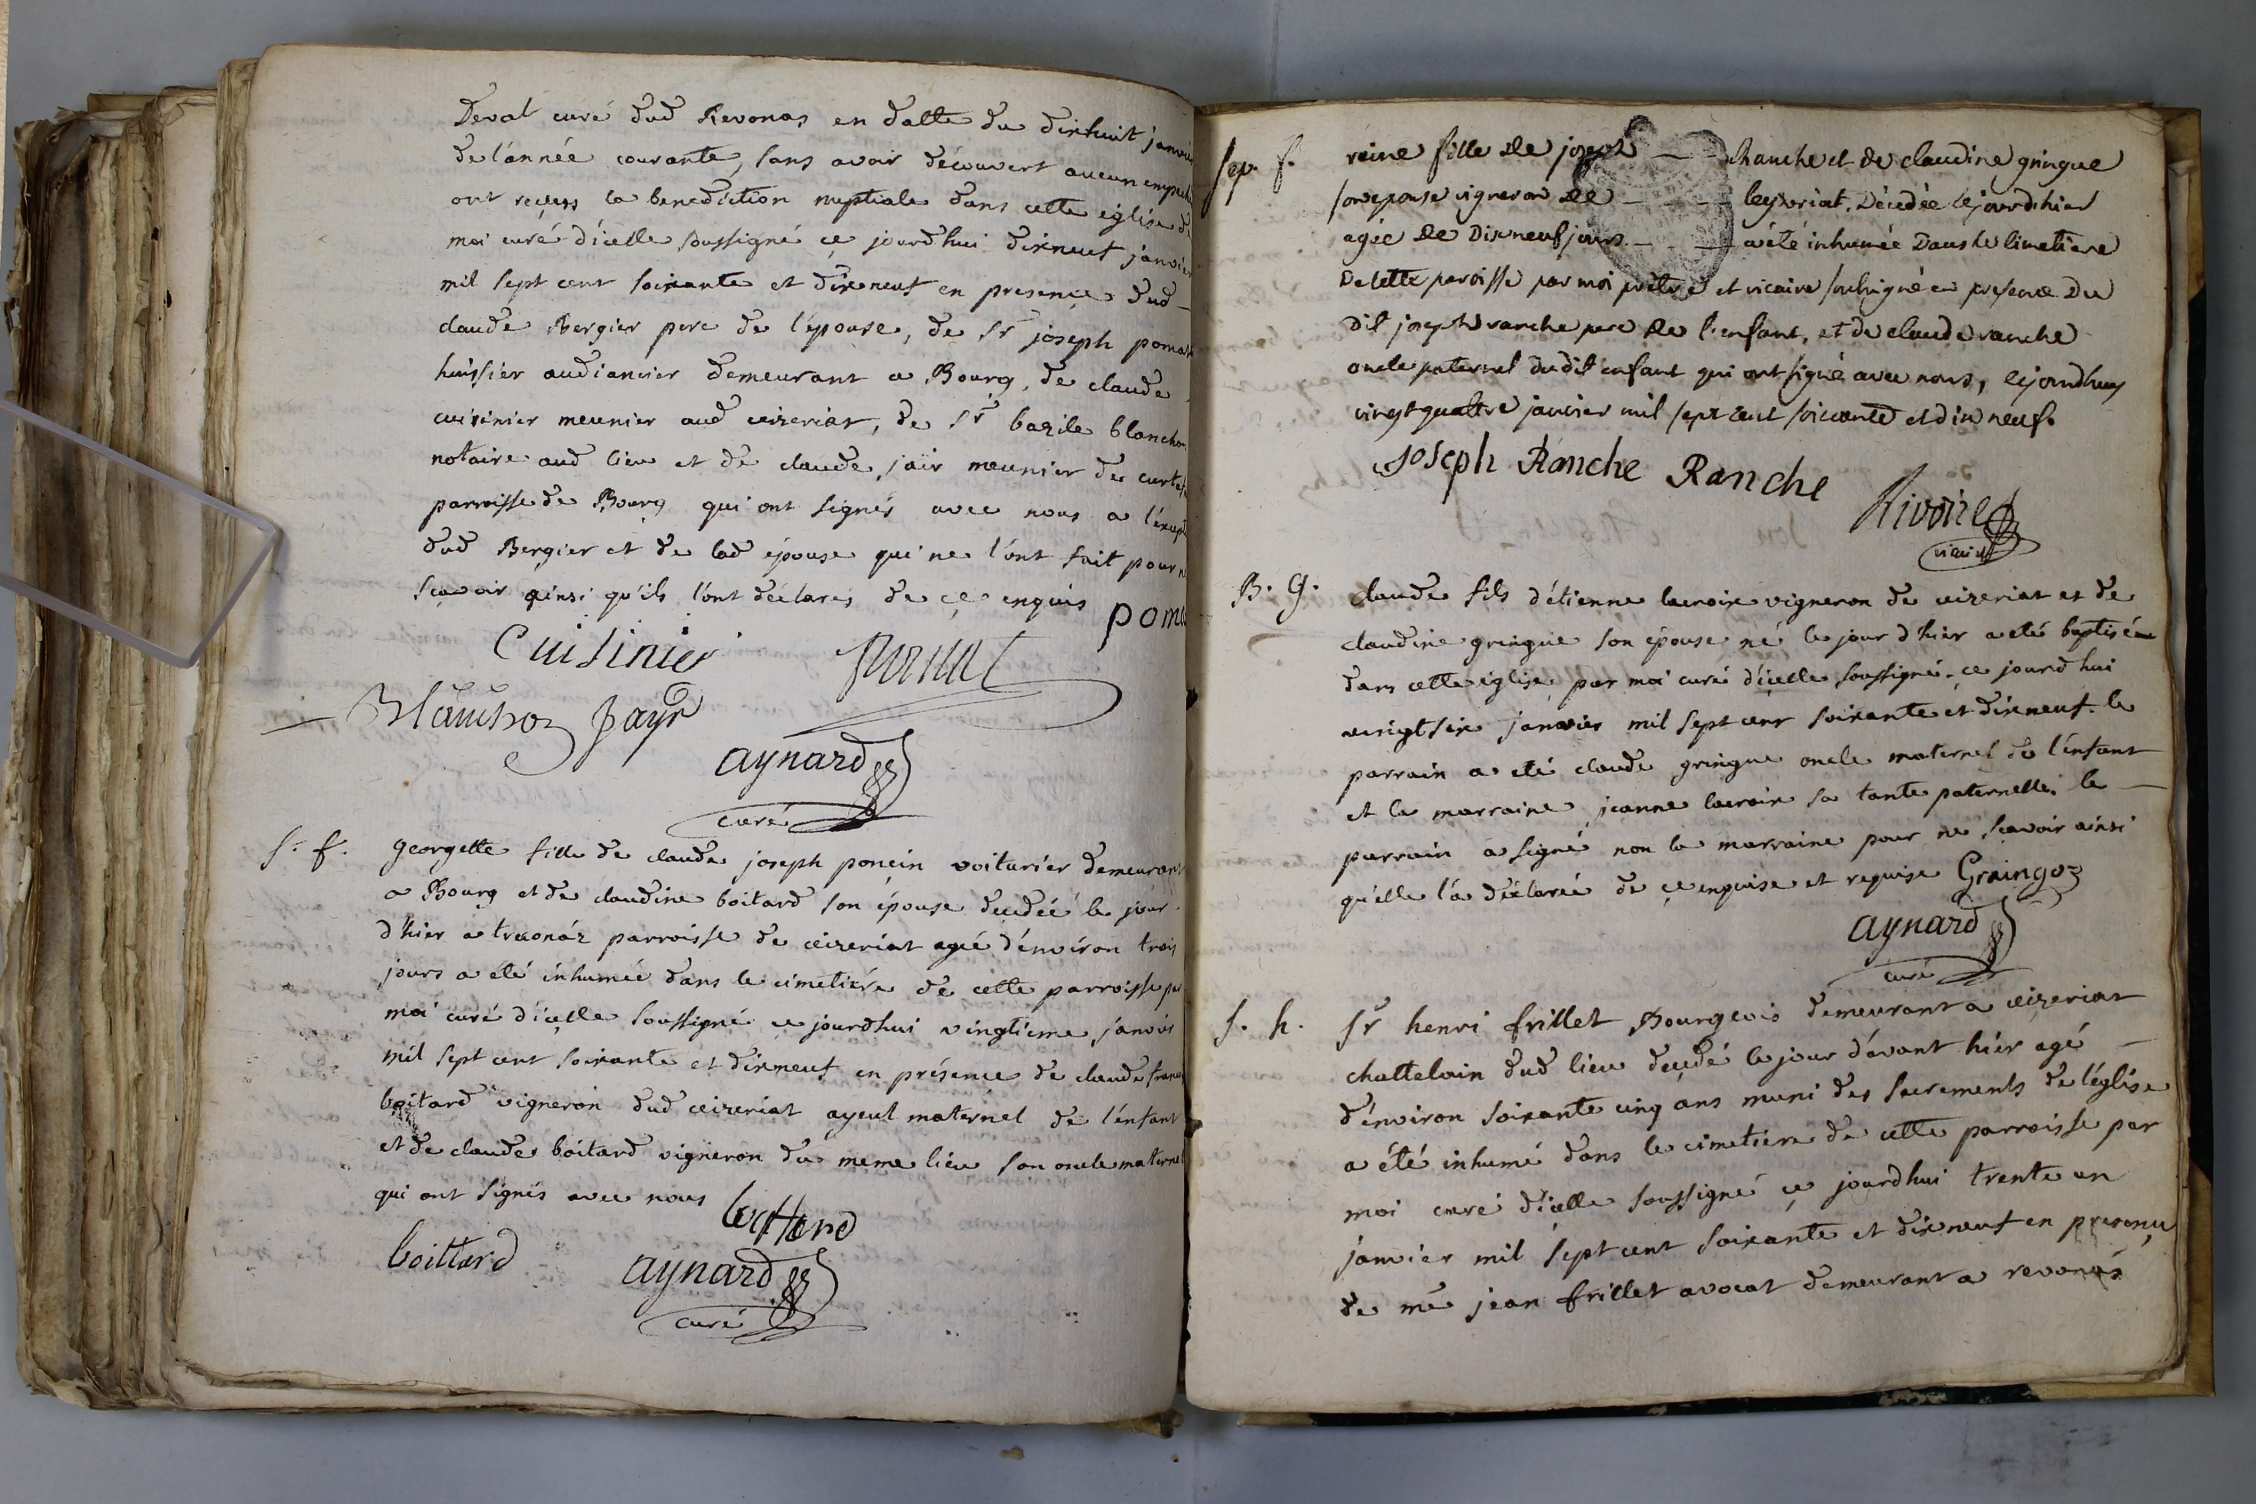 Deval curé dud Revonas en datte du dixhuit janvier
de l'année courante, sans avoir découvert aucun empech
ont reçeus la benediction nuptiale dans cette église de
moi curé d'icelle soussigné ce jourd'hui dixneuf janvier
mil sept cent soixante et dixneuf en presence dud
claude Bergier pere de l'épouse, de Sr joseph
huissier audiancier demeurant a Bourg, de claude
cuisinier meunier aud ceizeriat, de Sr bazile blanchon
notaire aud lieu et de claude jaïr meunier de
parroisse de Bourg qui ont signés avec nous a l'exept
dud Bergier et de lad épouse qui ne l'ont fait pour n
sçavoir ainsi qu'ils l'ont déclarés de ce enquis
pom
Cuisinier
Blanchon jayr
aynard
curé
S. f. georgette fille de claude joseph ponçin voiturier demeurant
a Bourg et de claudine boitard son épouse decedéé le jour
d'hier a treconáz parroisse de ceizeriat ageé d'énviron trois
jours a été inhumeé dans le cimetiére de cette parroisse par
moi curé d'icelle soussigné ce jourdhui vingtieme janvier
mil sept cent soixante et dixneuf en présence de claude franc
boitard vigneron dud ceizeriat ayeul maternel de l'énfant
et de claude boitard vigneron du meme lieu son oncle maternel
qui ont signés avec nous boittard
boittard aynard
curé
sep. f. reine fille de joseph ranche et de claudine gringue
son epouse vigneron de - - - - ceyzeriat, Décedée le jourd'hier
agée de Dix neuf jours - - - a été inhumée Dans le Cimetiere
De cette paroisse par moi prêtre et vicaire soussigné en presence Du
Dit joseph ranche pere de l'enfant, et de claude ranche
oncle paternel dudit enfant qui ont signé avec nous, cejourdhuy
vingt quattre janvier mil sept cent soixante et dix neuf.
Joseph Ranche Ranche
Rivoire
vicaire
B. G. claude fils d'étienne lacroix vigneron de ceizeriat et de
claudine gringue son épouse né le jour d'hier a eté baptisé
dans cette église par moi curé d'icelle soussigné ce jourd'hui
vingt six janvier mil sept cent soixante et dixneuf. le
parrain a eté claude gringue oncle maternel de l'énfant
et la marraine jeanne lacroix sa tante paternelle. le
parrain a signé non la marraine pour ne sçavoir ainsi
qu'elle l'a déclareé de ce enquise et requise Graingoz
aynard
curé
S. h. Sr henri frillet Bourgeois demeurant a ceizeriat
chattelain dud lieu decedé le jour d'avant hier agé
d'énviron soixante cinq ans muni des sacrements de l'église
a été inhumé dans le cimetiere de cette parroisse par
moi curé d'icelle soussigné ce jourdhui trente un
janvier mil sept cent soixante et dixneuf en presence
de me jean frillet avocat demeurant a revonás